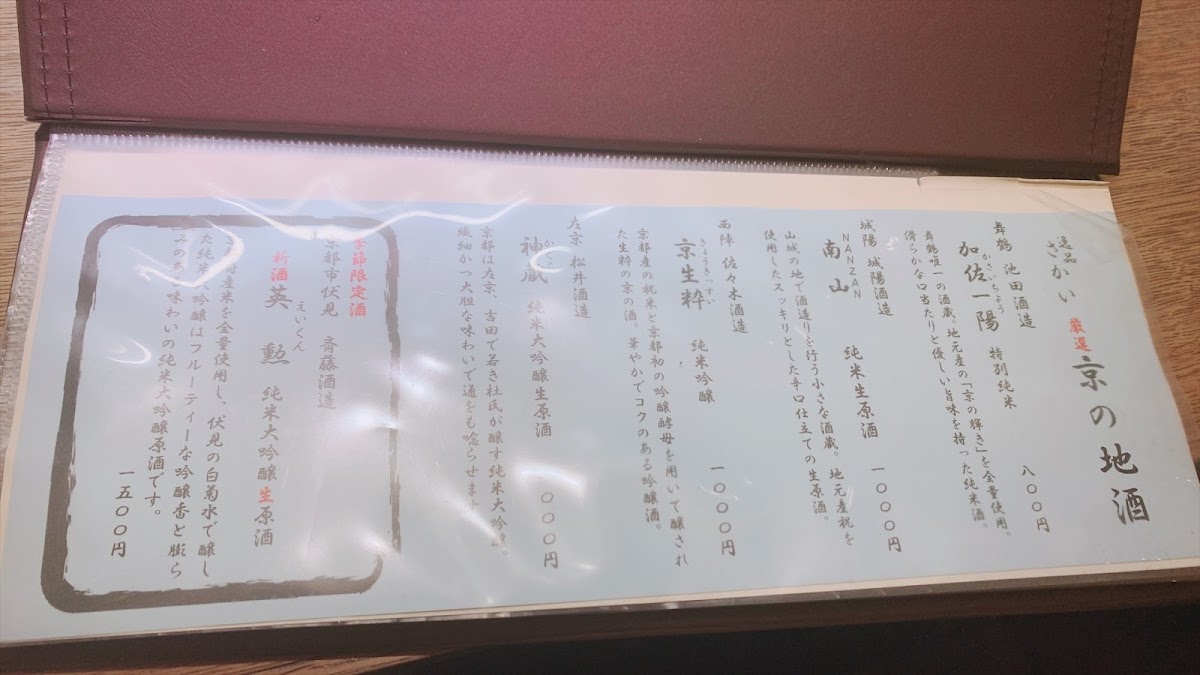 逸品
さかい 厳選 京の地酒
舞鶴 池田酒造
かさいちょう
加佐一陽 特別純米 八〇〇円
舞鶴唯一の酒蔵。地元産の「京の輝き」を全量使用。
滑らかな口当たりと優しい旨味を持った純米酒。
城陽 城陽酒造
NANZAN
南山 純米生原酒 一〇〇〇円
山城の地で酒造りを行う小さな酒蔵。地元産祝を
使用したスッキリとした辛口仕立ての生原酒。
西陣 佐々木酒造
きょうきっすい
京生粋 純米吟醸 一〇〇〇円
京都産の祝米と京都初の吟醸酵母を用いて醸され
た生粋の京の酒。華やかでコクのある吟醸酒。
左京 松井酒造
神蔵 純米大吟醸生原酒 〇〇〇円
京都は左京、吉田で若き杜氏が醸す純米大吟醸。
繊細かつ大胆な味わいで通をも唸らせます
季節限定酒
京都市伏見 斉藤酒造
えいくん
新酒 英勲 純米大吟醸生原酒
産米を全量使用し、伏見の白菊水で醸し
た純米大吟醸はフルーティーな吟醸香と膨ら
みのある味わいの純米大吟醸原酒です。
一五〇〇円